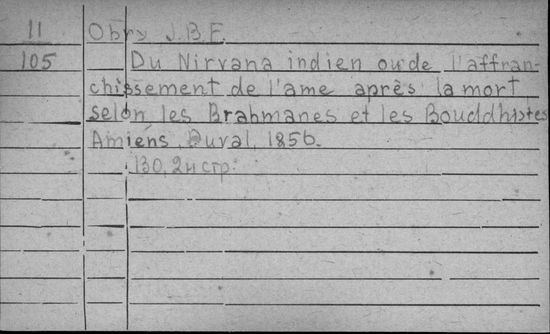 11 Obry J.B.F.
105 Du Nirvana indien ou de l'affran-
chissement de l'ame après la mort
selon les Brahmanes et les Bouddhistes
Amiens, Duval, 1856.
130, 2н стр.